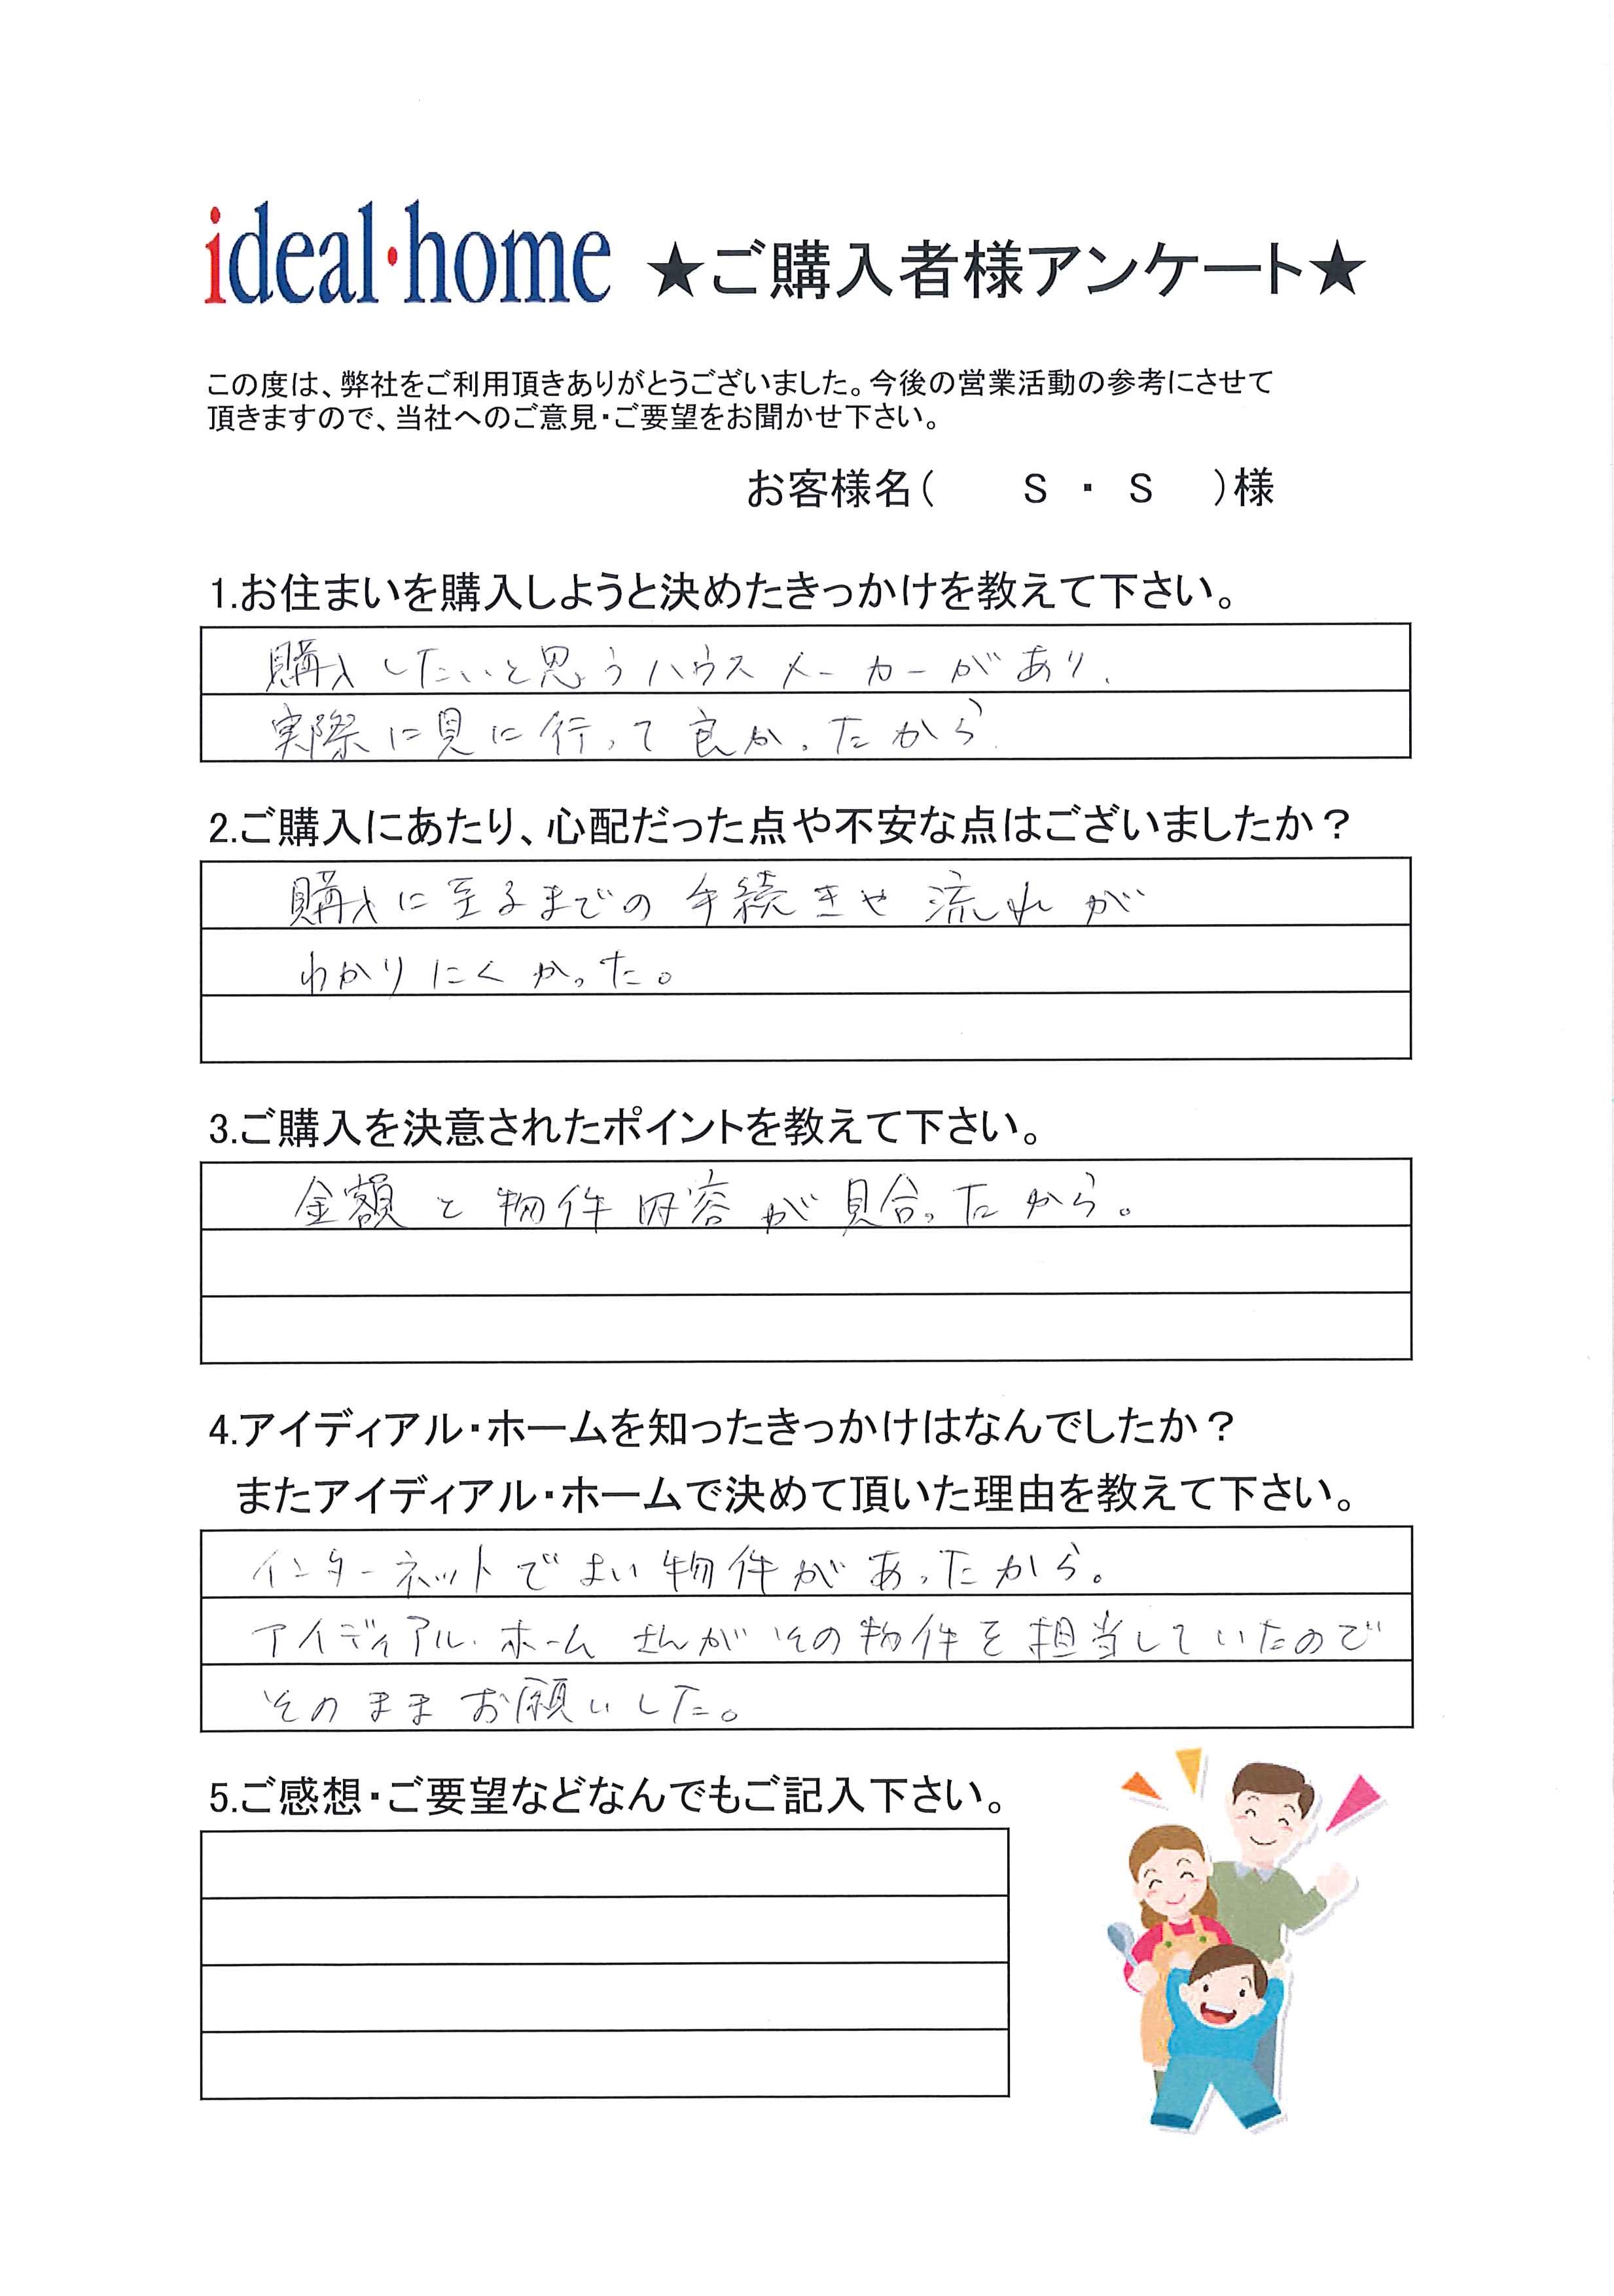 ideal・home ★ご購入者様アンケート★
この度は、弊社をご利用頂きありがとうございました。今後の営業活動の参考にさせて
頂きますので、当社へのご意見・ご要望をお聞かせ下さい。
お客様名( S ・ S )様
1.お住まいを購入しようと決めたきっかけを教えて下さい。
購入したいと思うハウスメーカーがあり、
実際に見に行って良かったから
2.ご購入にあたり、心配だった点や不安な点はございましたか？
購入に至るまでの手続きや流れが
わかりにくかった。
3.ご購入を決意されたポイントを教えて下さい。
金額と物件内容が見合ったから。
4.アイディアル・ホームを知ったきっかけはなんでしたか？
またアイディアル・ホームで決めて頂いた理由を教えて下さい。
インターネットでよい物件があったから。
アイディアル・ホームさんがその物件を担当していたので
そのままお願いした。
5.ご感想・ご要望などなんでもご記入下さい。